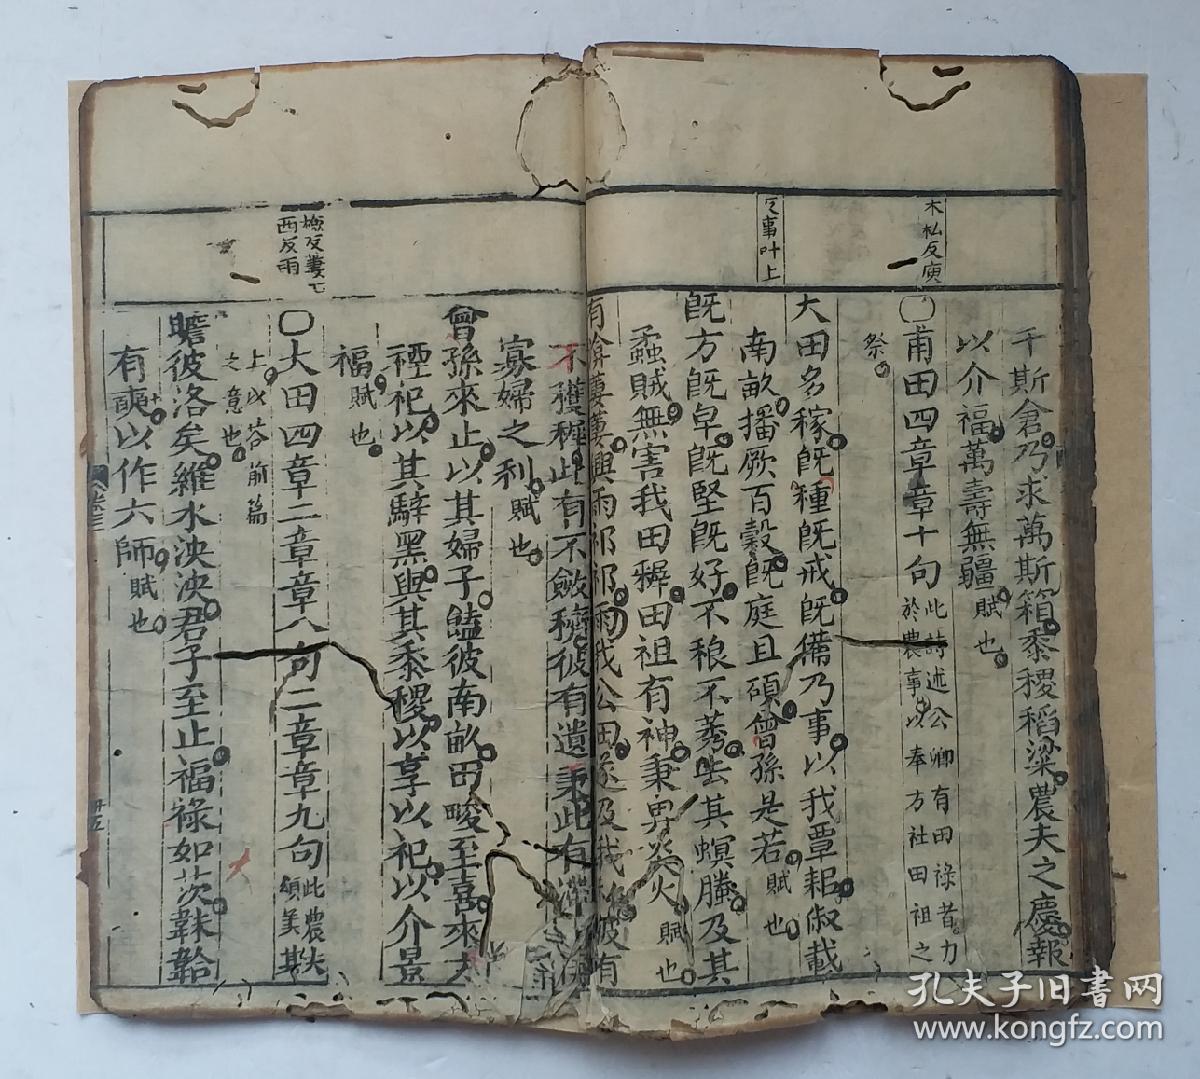 千斯倉乃求萬斯箱黍稷稻粱農夫之慶報
以介福萬壽無疆賦也
〇甫田四章章十句此詩述公卿有田祿者力
於農事以奉方社田祖之
祭
大田多稼既種既戒既備乃事以我覃耜俶載
南畝播厥百穀既庭且碩曾孫是若賦也
既方既皁既堅既好不稂不莠去其螟螣及其
蟊賊無害我田穉田祖有神秉畀炎火賦也
有渰萋萋興雨祁祁雨我公田遂及我私彼有
不穫穉此有不斂穧彼有遺秉此有滯穗
寡婦之利賦也
曾孫來止以其婦子饁彼南畝田畯至喜來方
禋祀以其騂黑與其黍稷以享以祀以介景
福賦也
〇大田四章二章章八句二章章九句此農夫
頌美其
上以答前篇
之意也
瞻彼洛矣維水泱泱君子至止福祿如茨韎韐
有奭以作六師賦也
木松反庾
事叶上
西反雨
卅五
孔夫子旧書网
www.kongfz.com